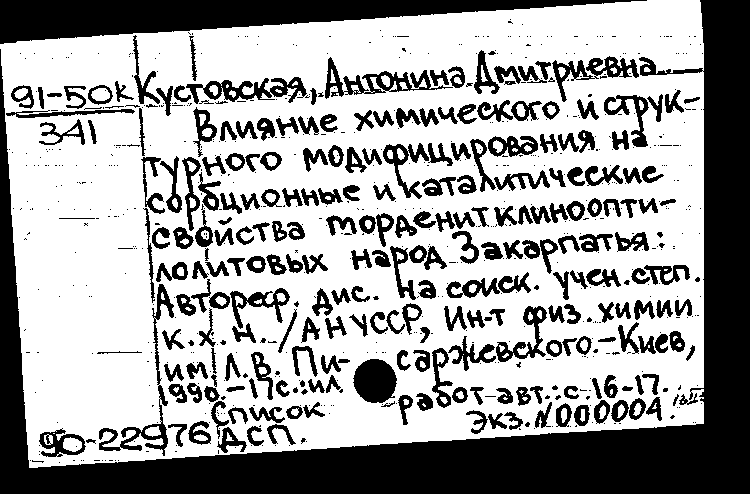 91-50к Кустовская, Антонина Дмитриевна
341
Влияние химического и струк-
турного модифицирования на
сорбционные и каталитические
свойства морденитклинопти-
лолитовых народ Закарпатья:
Автореф. дис. на соиск. учен. степ.
к.х.н. / АН УССР, Ин-т физ. химии
им. Л.В. Пи-саржевского.-Киев,
1990.-17с.:ил
Список работ авт.: с.16-17.
90-22976 ДСП. Экз. N000004.